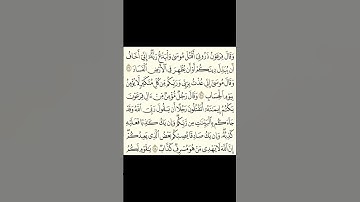 وَقَالَ فِرْعَوْنُ ذَرُونِي أَقْتُلْ مُوسَىٰ وَلْيَدْعُ رَبَّهُ إِنِّي أَخَافُ
أَن يُبَدِّلَ دِينَكُمْ أَوْ أَن يُظْهِرَ فِي الْأَرْضِ الْفَسَادَ ۝
وَقَالَ مُوسَىٰ إِنِّي عُذْتُ بِرَبِّي وَرَبِّكُم مِّن كُلِّ مُتَكَبِّرٍ لَّا يُؤْمِنُ
بِيَوْمِ الْحِسَابِ ۝ وَقَالَ رَجُلٌ مُّؤْمِنٌ مِّنْ ءَالِ فِرْعَوْنَ
يَكْتُمُ إِيمَانَهُ أَتَقْتُلُونَ رَجُلًا أَن يَقُولَ رَبِّيَ اللَّهُ وَقَدْ
جَاءَكُم بِالْبَيِّنَاتِ مِن رَّبِّكُمْ وَإِن يَكُ كَاذِبًا فَعَلَيْهِ
كَذِبُهُ وَإِن يَكُ صَادِقًا يُصِبْكُم بَعْضُ الَّذِي يَعِدُكُمْ
إِنَّ اللَّهَ لَا يَهْدِي مَنْ هُوَ مُسْرِفٌ كَذَّابٌ ۝ يَا قَوْمِ لَكُمُ